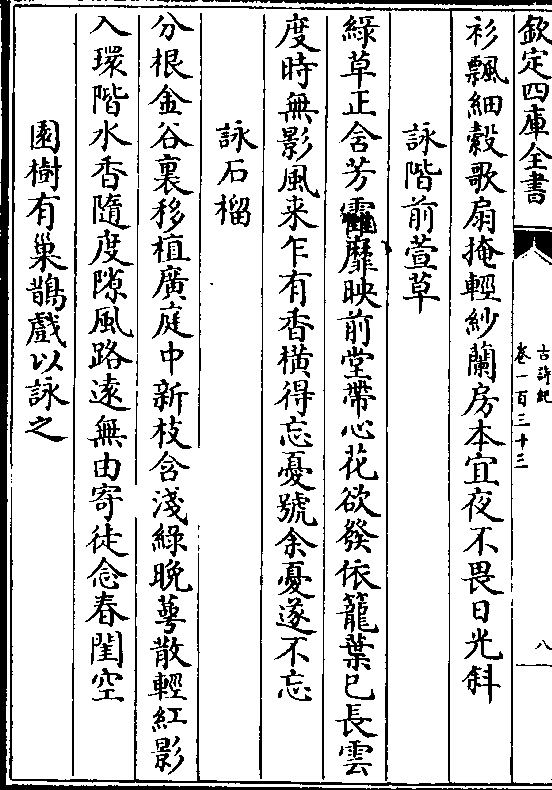 欽定四庫全書
古詩紀
卷一百三十三
八
衫飄細縠歌扇掩輕紗蘭房本宜夜不畏日光斜
詠階前萱草
綠草正含芳靡映前堂帶心花欲發依籠葉已長雲
度時無影風来乍有香橫得忘憂號余憂遂不忘
詠石榴
分根金谷裏移植廣庭中新枝含淺綠晚萼散輕紅影
入環階水香隨度隙風路遠無由寄徒念春閨空
園樹有巢鵲戲以詠之